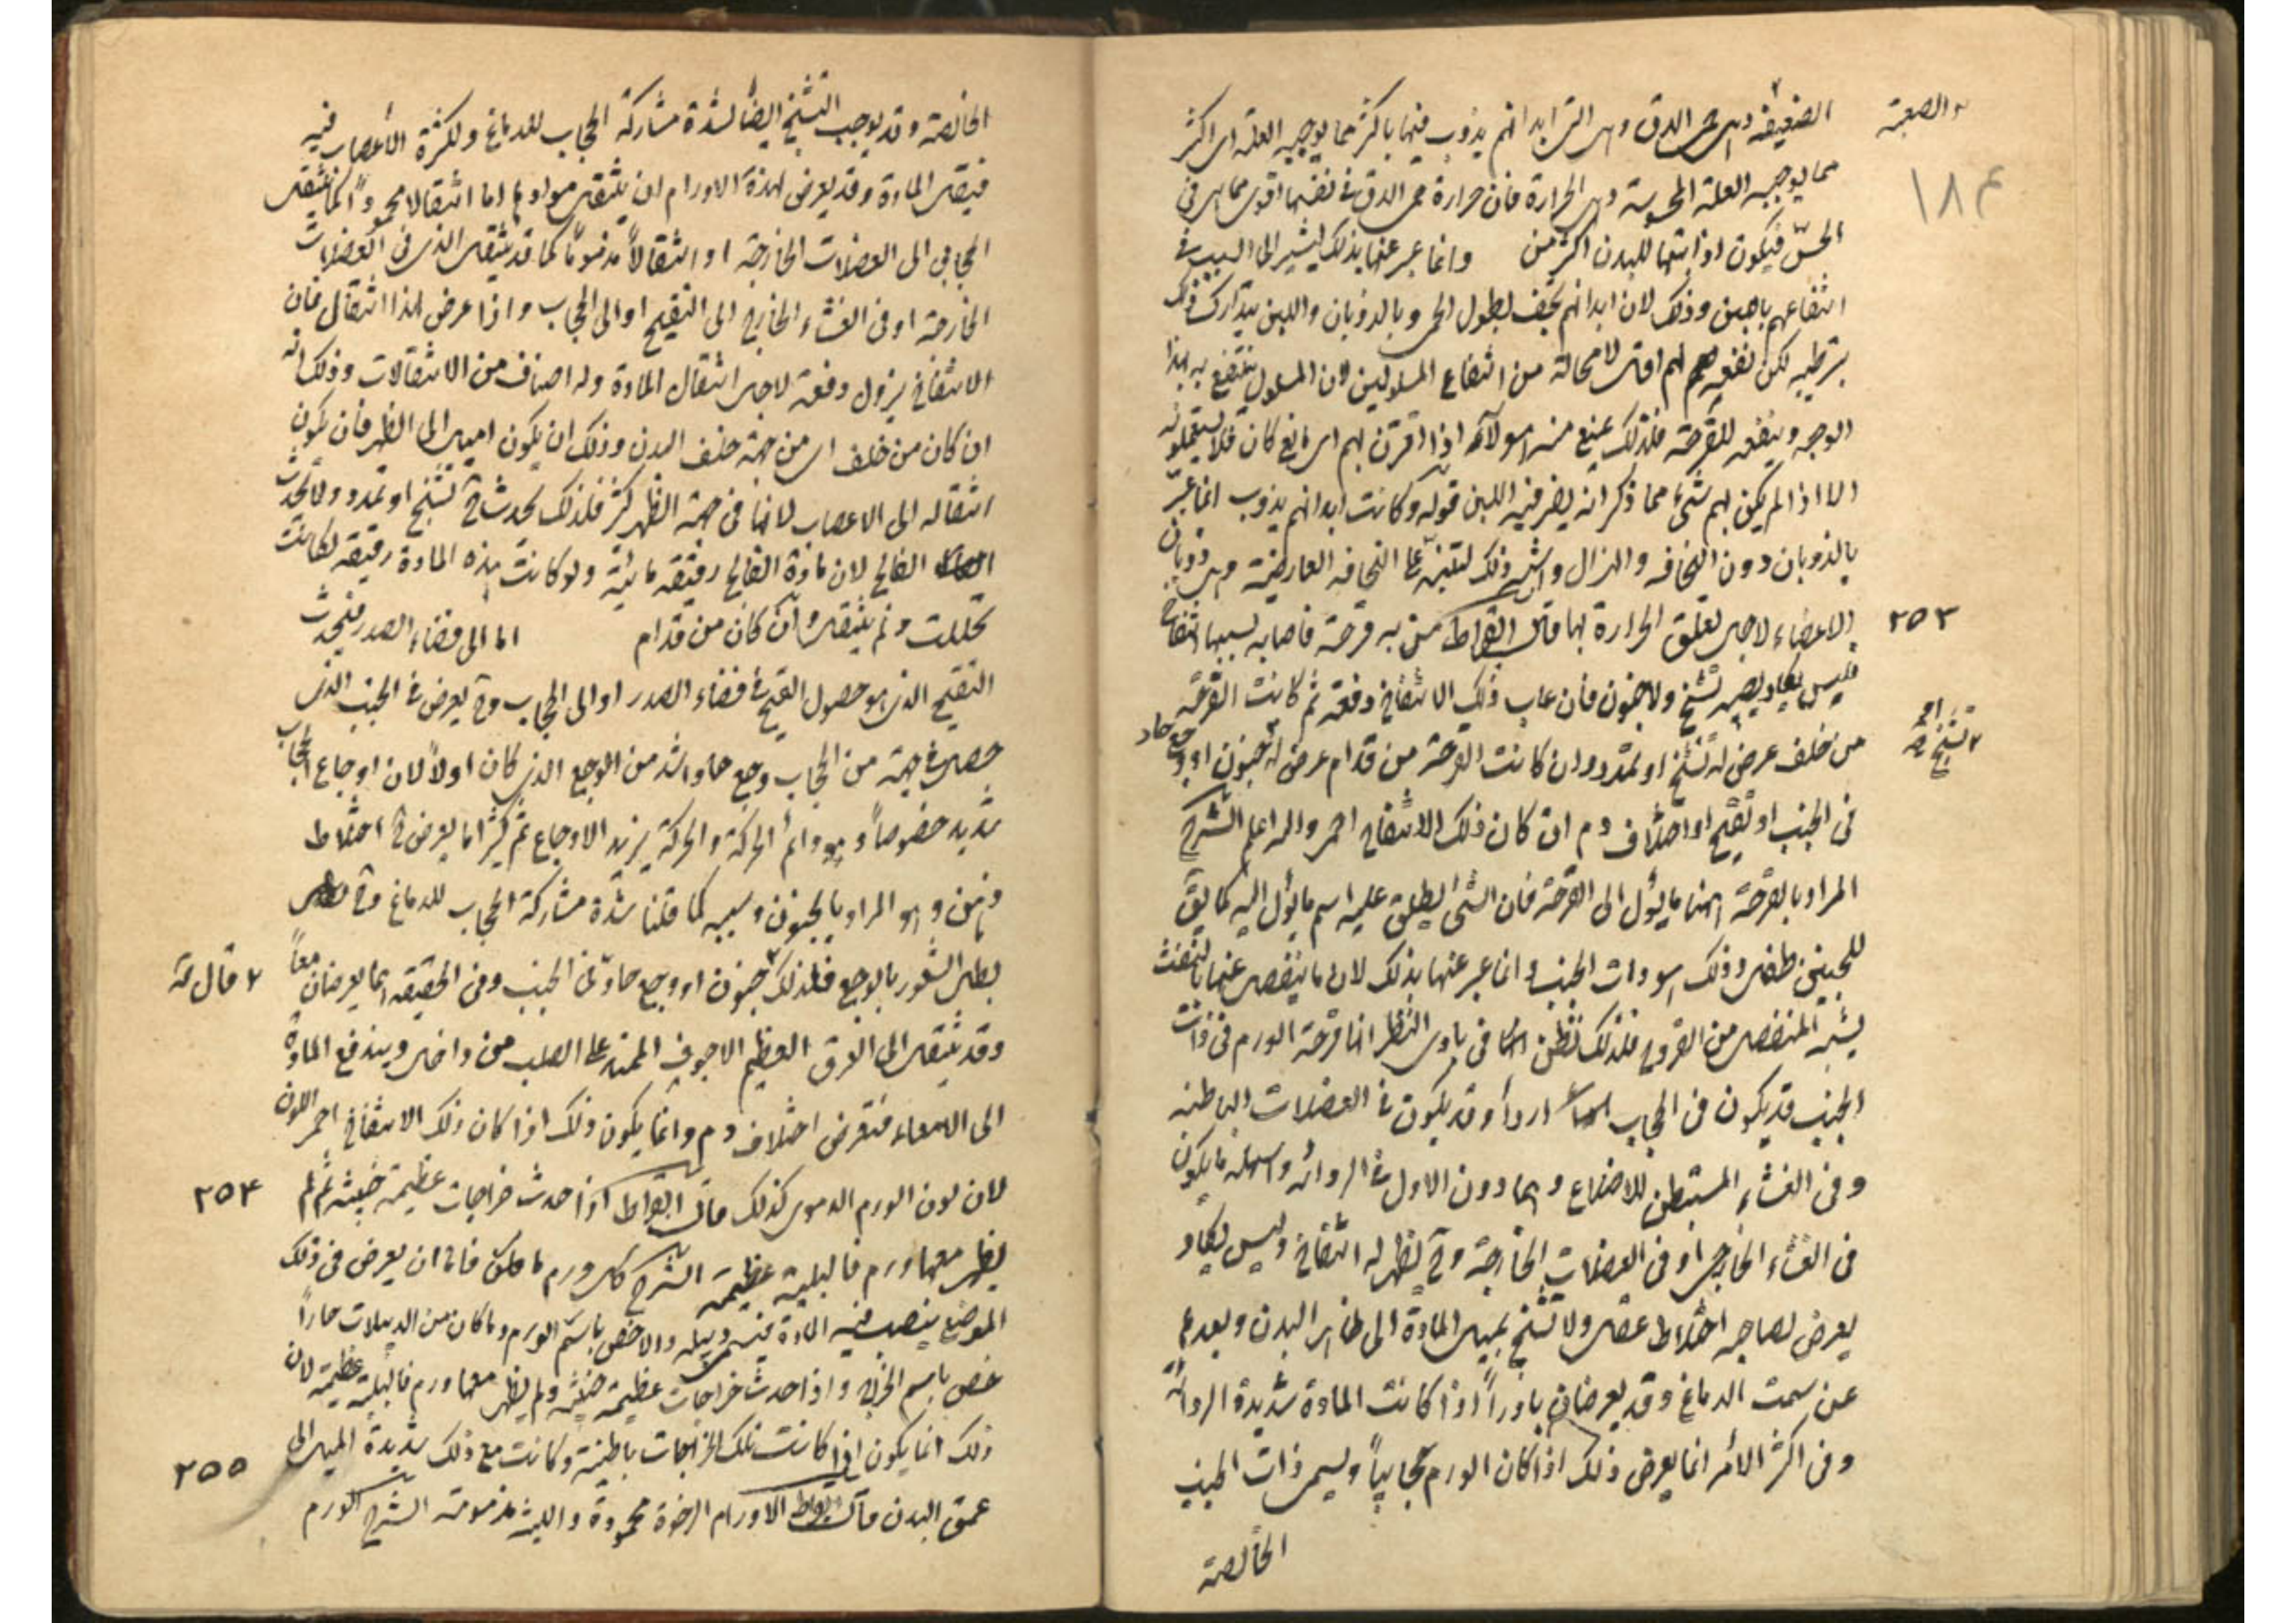 الضعيفة وهى حمى الدق وهى التى ابدانهم يذوب فيها باكثر مما يوجبه العلة اى اكثر
والصعبة
مما يوجبه العلة المحسوسة وهى الحرارة فان حرارة حمى الدق فى نفسها اقوى مما هى فى
١٨٤
الحسّ فيكون اذابتها للبدن اكثر من وانما عبر عنها بذلك ليشير الى السبب فى
انتفاعهم باللبن وذلك لان ابدانهم يجف لطول الحمى وبالذوبان واللبن يتدارك ذلك
بترطيبه لكن نفعه لهم اقل لا محالة من انتفاع المسلولين لان المسلول ينتفع به بهذا
الوجه وينفعه للقرحة فلذلك يمنع منه هولآء اذا اقترن بهم اى مانع كان فلا يستعملونه
الا اذا لم يكن بهم شئ مما ذكر انه يضر فيه اللبن قوله وكانت ابدانهم يذوب انما عبّر
بالذوبان دون النحافه والهزال وذلك لتنبّه على النحافه العارضة وهى ذوبان
الاعضاء لاجل تعلق الحرارة بها قال ابقراط من به قرحة فاصابه بسببها انتفاخ
٢٥٣
فليس يكاد يصيبه تشنج ولا جنون فان غاب ذلك الانتفاخ دفعة ثم كانت القرحة
من خلف عرض له تشنج او تمدد وان كانت القرحة من قدام عرض له جنون او وجع حاد
تشنج
فى الجنب او تقيّح او اختلاف دم ان كان ذلك الانتفاخ احمر والله اعلم الشرح
المراد بالقرحة ههنا ما يؤل الى القرحة فان الشئ يطلق عليه اسم ما يؤل اليه كما يق
للجنين طفل وذلك هو ذات الجنب وانما عبر عنها بذلك لان ما ينفصل عنها بالنفث
يشبه المنفصل من القروح فلذلك تظن فى بادى النظر انها قرحة الورم فى ذات
الجنب قد يكون فى الحجاب اردأ وقد يكون فى العضلات الباطنه
وفى الغشاء المستبطن للاضلاع وهما دون الاول فى الردائة واسهله ما يكون
فى الغشاء الخارجى او فى العضلات الخارجة وح يظهر له انتفاخ وليس يكاد
يعرض لصاحبه اختلاط عقل ولا تشنج لميل المادة الى ظاهر البدن وبعدها
عن سمت الدماغ وقد يعرضان نادراً اذا كانت المادة شديدة الردائة
وفى اكثر الامر انما يعرض ذلك اذا كان الورم حجابياً ويسمى ذات الجنب
الخالصة
الخالصة وقد يوجب التشنج ايضاً لشدة مشاركة الحجاب للدماغ ولكثرة الاعصاب فيه
فينتقل المادة وقد يعرض لهذه الاورام ان ينتقل موادها اما انتقالا محموداً كما ينتقل
الحجابى الى العضلات الخارجة او انتقالاً مذموماً كما قد ينتقل الذى فى العضلات
الخارجة او فى الغشاء الخارج الى التقيح او الى الحجاب واذا عرض هذا انتقال فان
الانتفاخ يزول دفعة لاجل انتقال المادة وله اصناف من الانتقالات وذلك انه
ان كان من خلف اى من جهة خلف البدن وذلك ان يكون اميل الى الظهر فان يكون
انتقاله الى الاعصاب لانها فى جهة الظهر اكثر فلذلك يحدث ح تشنج او تمدد ولا يحدث
الفالج لان مادة الفالج رقيقه مائية ولو كانت هذه المادة رقيقه لكانت
تحللت ولم ينتقل وان كان من قدام اما الى فضاء الصدر فيحدث
التقيح الذى هو حصول القيح فى فضاء الصدر او الى الحجاب وح يعرض فى الجنب الذى
حصل فى جهة من الحجاب وجع حاد اشد من الوجع الذى كان اولاً لان اوجاع الحجاب
شديد خصوصاً وهو دائم الحركة والحركة يزيد الاوجاع ثم كثيرا ما يعرض ح اختلاط
ذهن وهو المراد بالجنون وسببه كما قلنا شدة مشاركة الحجاب للدماغ وح
يبطل الشعور بالوجع فلذلك جنون او وجع حاد فى الجنب وفى الحقيقه انهما يعرضان معاً
قال له
وقد ينتقل الى العرق العظيم الاجوف الممتد على الصلب من داخل ويندفع المادة
الى الامعاء فيعرض اختلاف دم وانما يكون ذلك اذا كان ذلك الانتفاخ احمر اللون
لان لون الورم الدموى كذلك قال ابقراط اذا حدث خراجات عظيمة خبيثة ثم لم
٢٥٤
يظهر معها ورم فالبلية عظيمة الشرح كل ورم فاما ان يعرض فى ذلك
الموضع ينصب فيه المادة فيسمى دبيله والاخص باسم الورم وما كان من الدبيلات حاراً
خص باسم الخراج واذا حدث خراجات عظيمة خبيثة ولم يظهر معها ورم فالبلية عظيمة لان
ذلك انما يكون اذا كانت تلك الخراجات باطنية وكانت مع ذلك شديدة الميل الى
٢٥٥
عمق البدن قال ابقراط الاورام الرخوة محمودة واللينة مذمومة الشرح الورم